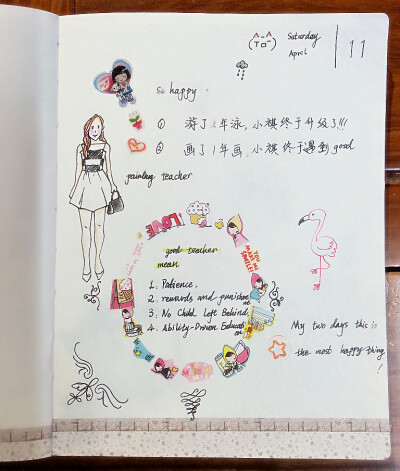 Saturday
April
11
So happy:
① 游了1年泳,小祺终于升级了!!!
② 画了1年画,小祺终于遇到good
painting teacher
LOVE
good teacher
mean
1. Patience,
2. rewards and punishment
3. No Child Left Behind,
4. Ability-Driven Education
My two days this is
the most happy thing
!